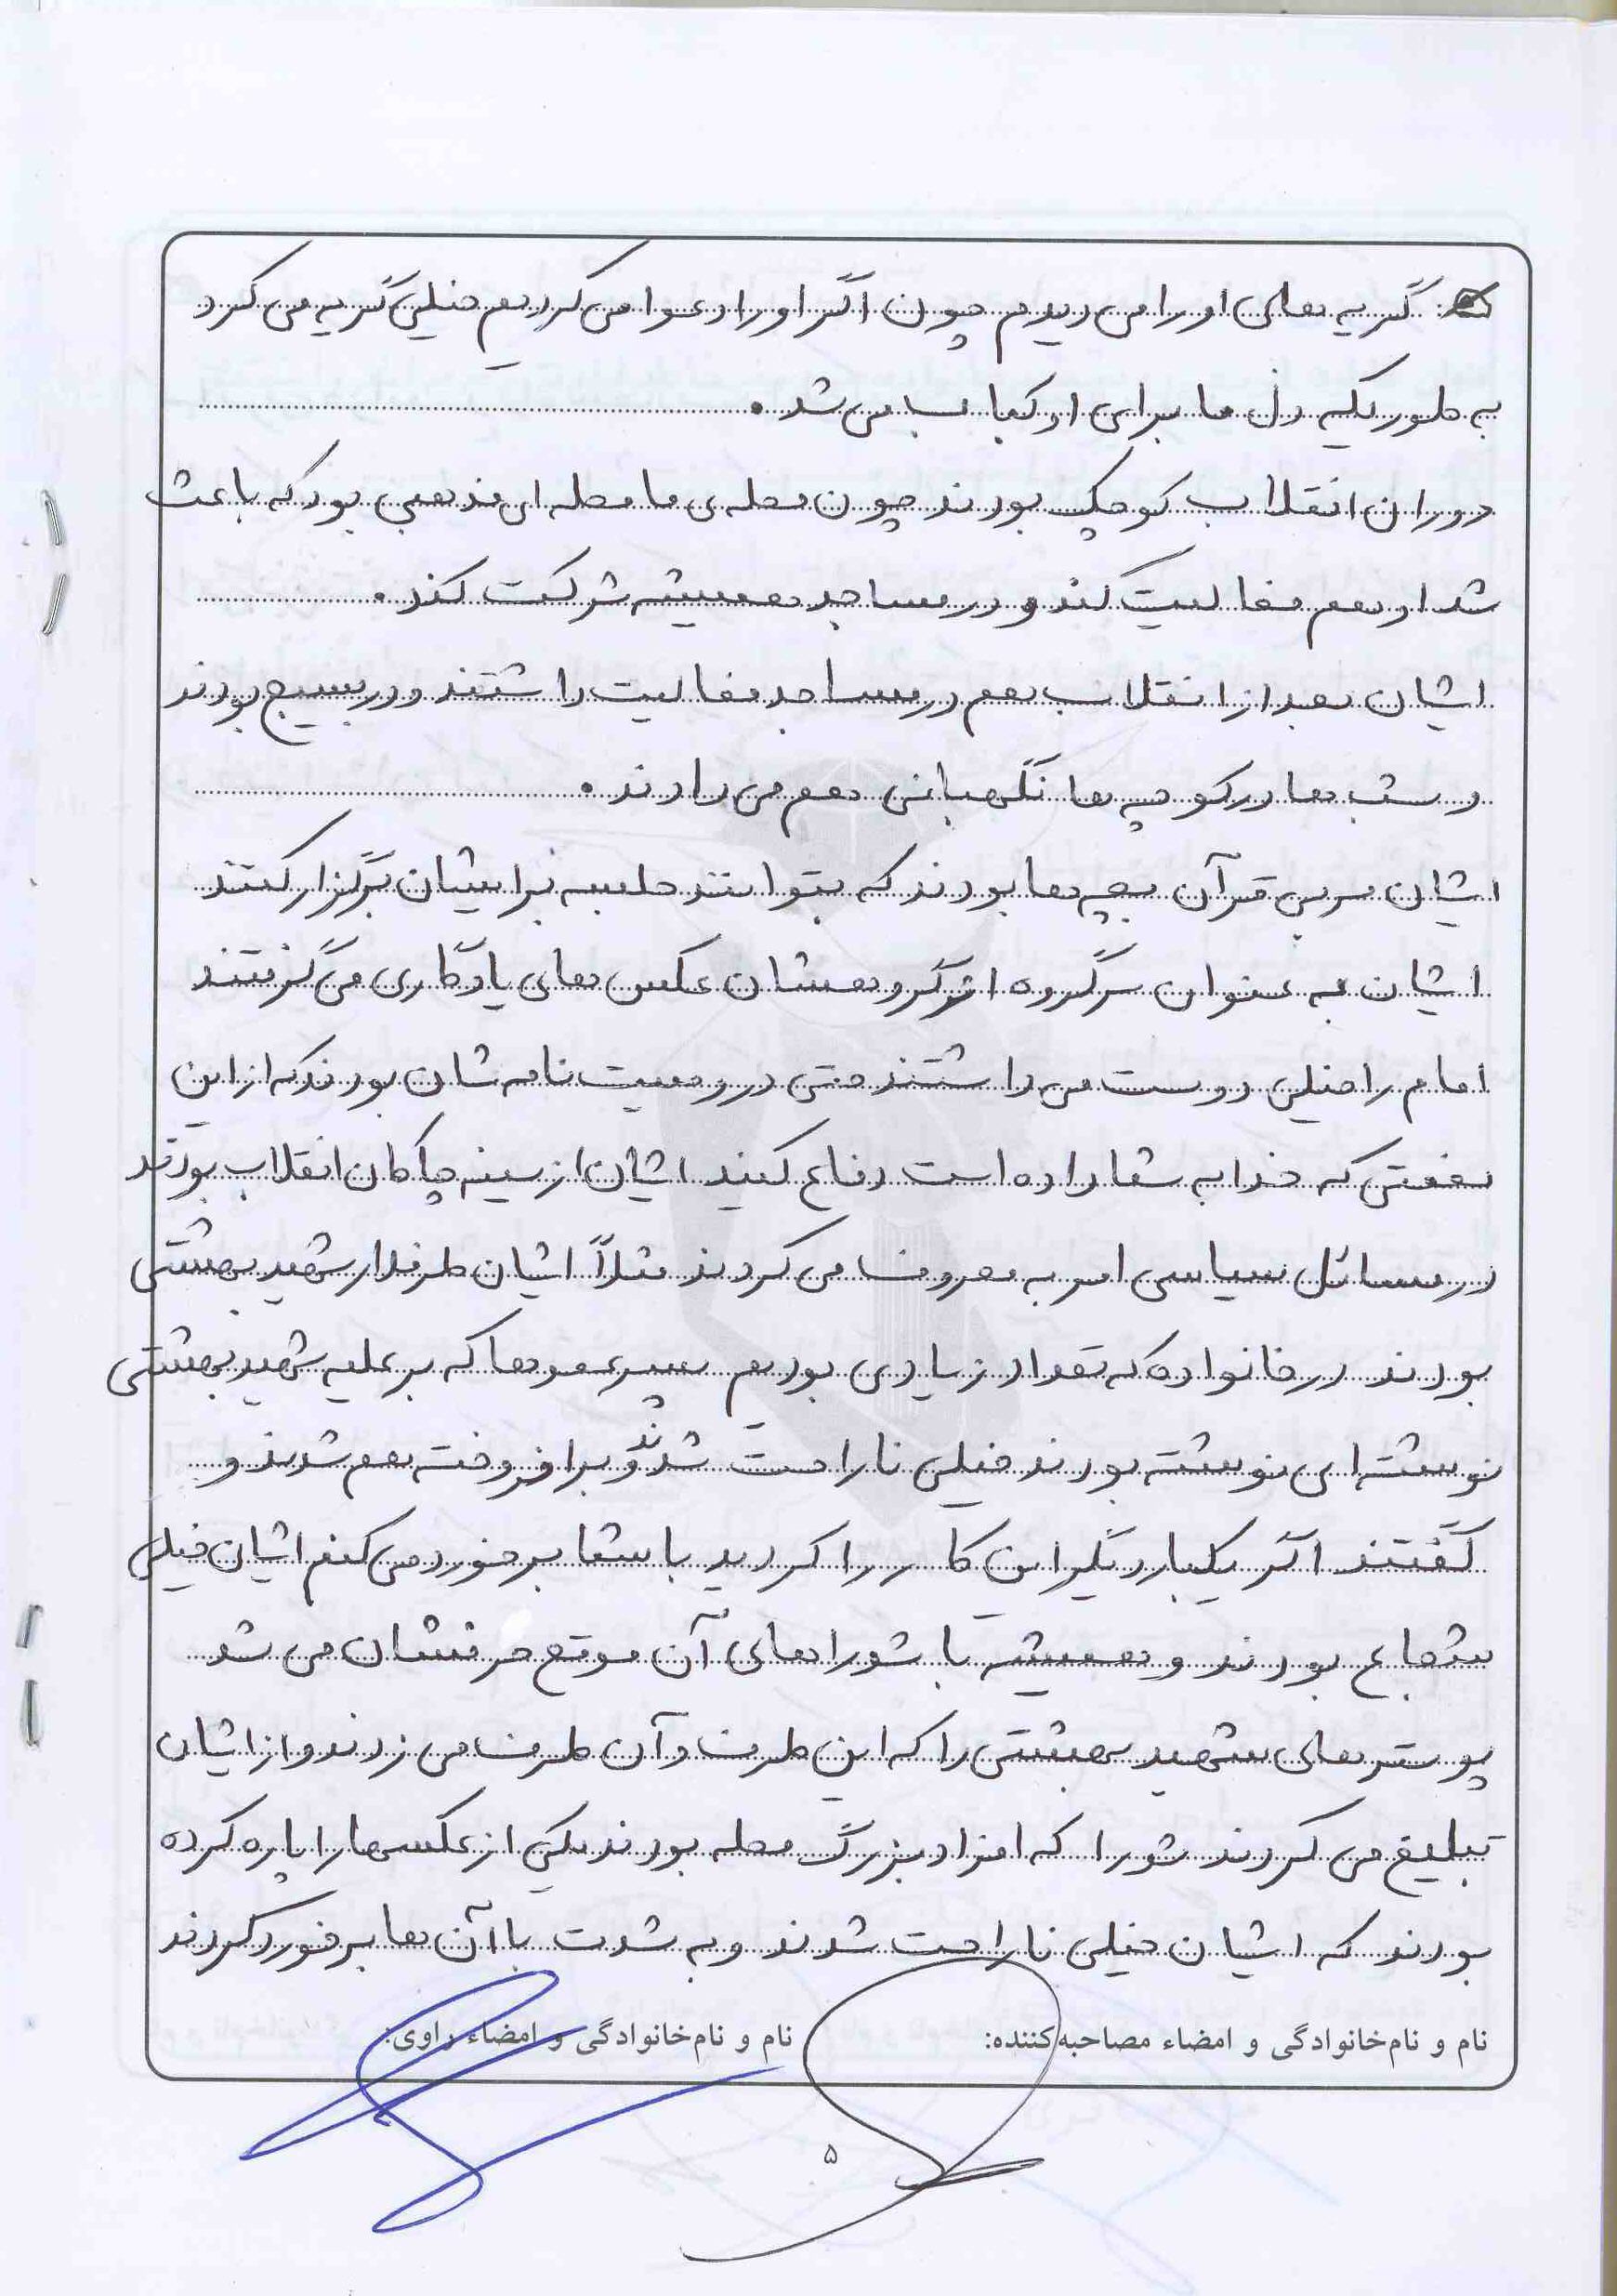 گریه های او را می دیدم چون اگر او را دعوا می کردیم خیلی گریه می کرد
به طوریکه دل ما برای او کباب می شد.
دوران انقلاب کوچک بودند چون محله ی ما محله ای مذهبی بود که باعث
شد او هم فعالیت کند و در مساجد همیشه شرکت کند.
ایشان بعد از انقلاب هم در مساجد فعالیت داشتند و در بسیج بودند
و شب ها در کوچه ها نگهبانی هم می دادند.
ایشان مربی قرآن بچه ها بودند که بتوانند جلسه برایشان برگزار کنند
ایشان به عنوان سرگروه از گروهشان عکس های یادگاری می گرفتند
امام را خیلی دوست می داشتند حتی در وصیت نامه شان بودند که از این
نعمتی که خدا به شما داده است دفاع کنید ایشان از سینه چاکان انقلاب بودند
در مسائل سیاسی امر به معروف می کردند مثلاً ایشان طرفدار شهید بهشتی
بودند در خانواده که تعداد زیادی بودیم پسر عموها که بر علیه شهید بهشتی
نوشته ای نوشته بودند خیلی ناراحت شدند و برافروخته هم شدند و
گفتند اگر یکبار دیگر این کار را کردید با شما برخورد می کنم ایشان خیلی
شجاع بودند و همیشه با شوراهای آن موقع حرفشان می شد
پوسترهای شهید بهشتی را که این طرف و آن طرف می زدند و از ایشان
تبلیغ می کردند شورا که افراد بزرگ محله بودند یکی از عکسها را پاره کرده
بودند که ایشان خیلی ناراحت شدند و به شدت با آن ها برخورد کردند
نام و نام‌خانوادگی و امضاء مصاحبه‌کننده: نام و نام‌خانوادگی و امضاء راوی:
۵